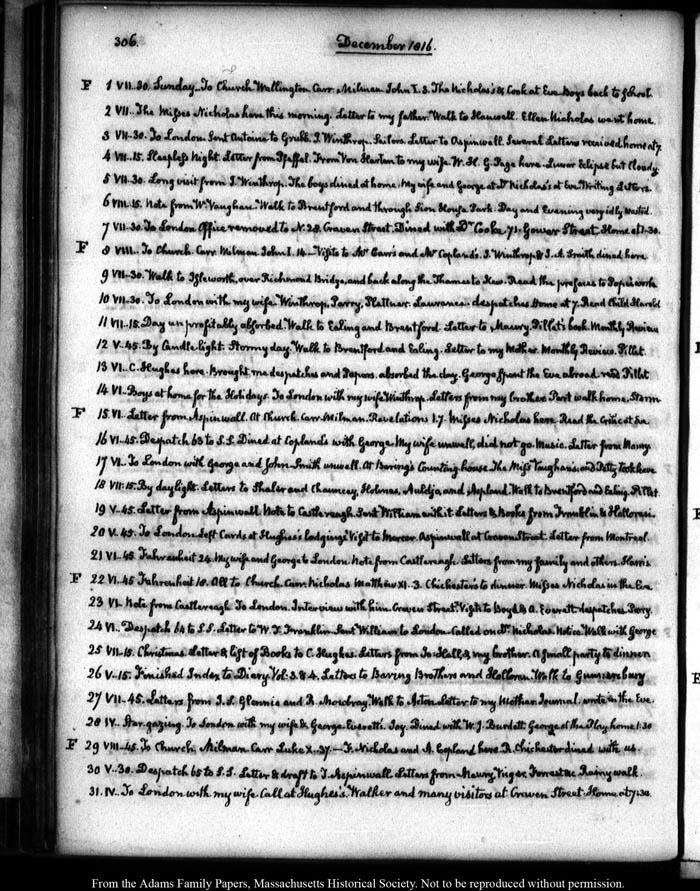 306.
December 1816.
F 1 VII.30. Sunday. To Church. Wellington. Carr. Milman. John I. 3. The Nicholas's & Look at Eve. Boys back to School.
2 VII. The Misses Nicholas here this morning. Letter to my father. Walk to Hanwell. Ellen Nicholas went home.
3 VII.30. To London. Sent Antoine to Grubb. J. Winthrop. Sailors. Letter to Aspinwall. Several Letters received home at 7.
4 VII.15. Sleepless Night. Letter from Pfeffel. From Von Harten to my wife. W. H. G. Page here. Lunar Eclipse but Cloudy.
5 VII.30. Long visit from J. Winthrop. The boys dined at home. My wife and George at Dr Nicholas's at Eve. Writing Letters.
6 VIII.15. Note from W. Vaughan. Walk to Brentford and through Sion House Park. Day and Evening very idly wasted.
7 VII.30. To London. Office removed to N. 28. Craven Street. Dined with Dr Cooke 73. Gower Street. Home at 1.30.
F 8 VIII. To Church. Carr. Milman. John I. 14. Visits to Mr Carr's and Mr Copland's. J. Winthrop & J. A. Smith dined here.
9 VII.30. Walk to Isleworth, over Richmond Bridge, and back along the Thames to Kew. Read the prefaces to Pope's works
10 VII.30. To London with my wife. Winthrop, Parry, Plattner. Lawrance. despatches. Home at 7. Read Child Harold
11 VII.15. Day unprofitably absorbed. Walk to Ealing and Brentford. Letter to Maury. Pillet's book. Monthly Review
12 V.45. By Candle light. Stormy day. Walk to Brentford and Ealing. Letter to my Mother. Monthly Review. Pillet.
13 VI. C. Hughes here. Brought me despatches and Papers. absorbed the day. George spent the Eve abroad read Pillet
14 VI. Boys at home for the Holidays. To London with my wife. Winthrop. Letters from my brother. Part walk home. Storm
F 15 VI. Letter from Aspinwall. At Church. Carr. Milman. Revelations 1.7. Misses Nicholas here. Read the Critic at Eve
16 VI.45. Despatch 63 to S.S. Dined at Copland's with George. My wife unwell, did not go. Music. Letter from Maury
17 VI. To London with George and John. Smith unwell. At Baring's Counting house. The Miss Vaughans, and Petty took leave
18 VII.15. By daylight. Letters to Shaler and Chauncey, Holmes, Auldjo, and Aspland. Walk to Brentford and Ealing. Pillet.
19 V.45. Letter from Aspinwall. Note to Castlereagh. Sent William with it. Letters & Books from Franklin & Holloran.
20 V.45. To London. Left Cards at Hughes's lodgings. Visit to Mercer. Aspinwall at Craven Street. Letter from Montreal.
21 VI.45. Fahrenheit 24. My wife and George to London. Note from Castlereagh. Letters from my family and others. Harris
F 22 VI.45 Fahrenheit 18. All to Church. Carr. Nicholas. Matthew XI. 3. Chichester's to dinner. Misses Nicholas in the Eve
23 VI. Note from Castlereagh. To London. Interview with him. Craven Street. Visits to Boyd & A. Everett. despatches. Perry.
24 VI. Despatch 64 to S.S. Letter to W. T. Franklin. Sent William to London. Called on Dr. Nicholas. Notice. Walk with George
25 VII.15. Christmas. Letter & list of Books to C. Hughes. Letters from Jo: Hall, & my brother. A small party to dinner
26 V.15. Finished Index to Diary Vol: 3. & 4. Letters to Baring Brothers and Holloran. Walk to Gunnersbury
27 VII.45. Letters from J. S. Glennie and R. Mowbray. Walk to Acton. Letter to my Mother. Journal wrote in the Eve.
28 IV. Star gazing. To London with my wife & George. Everett. Joy. Dined with W. J. Burdett. George at the Play. home 1.30
F 29 VIII.45. To Church. Milman. Carr. Luke X. 37. F. Nicholas and A. Copland here. R. Chichester dined with us.
30 V.30. Despatch 65 to S.S. Letter & draft to T. Aspinwall. Letters from Maury, Vriger, Forrest &c. Rainy walk.
31. IV. To London with my wife. Call at Hughes's. Walker and many visitors at Craven Street. Home at 7.30.
From the Adams Family Papers, Massachusetts Historical Society. Not to be reproduced without permission.